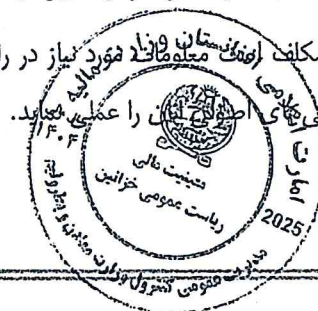 مکلف است معلومات مورد نیاز در را
را عملی نماید.
امارت اسلامی افغانستان وزارت مالیه
۱۴۰۴
معینیت مالی
ریاست عمومی خزاین
2025
مدیریت عمومی کنترول وزارت معادن و پترولیم